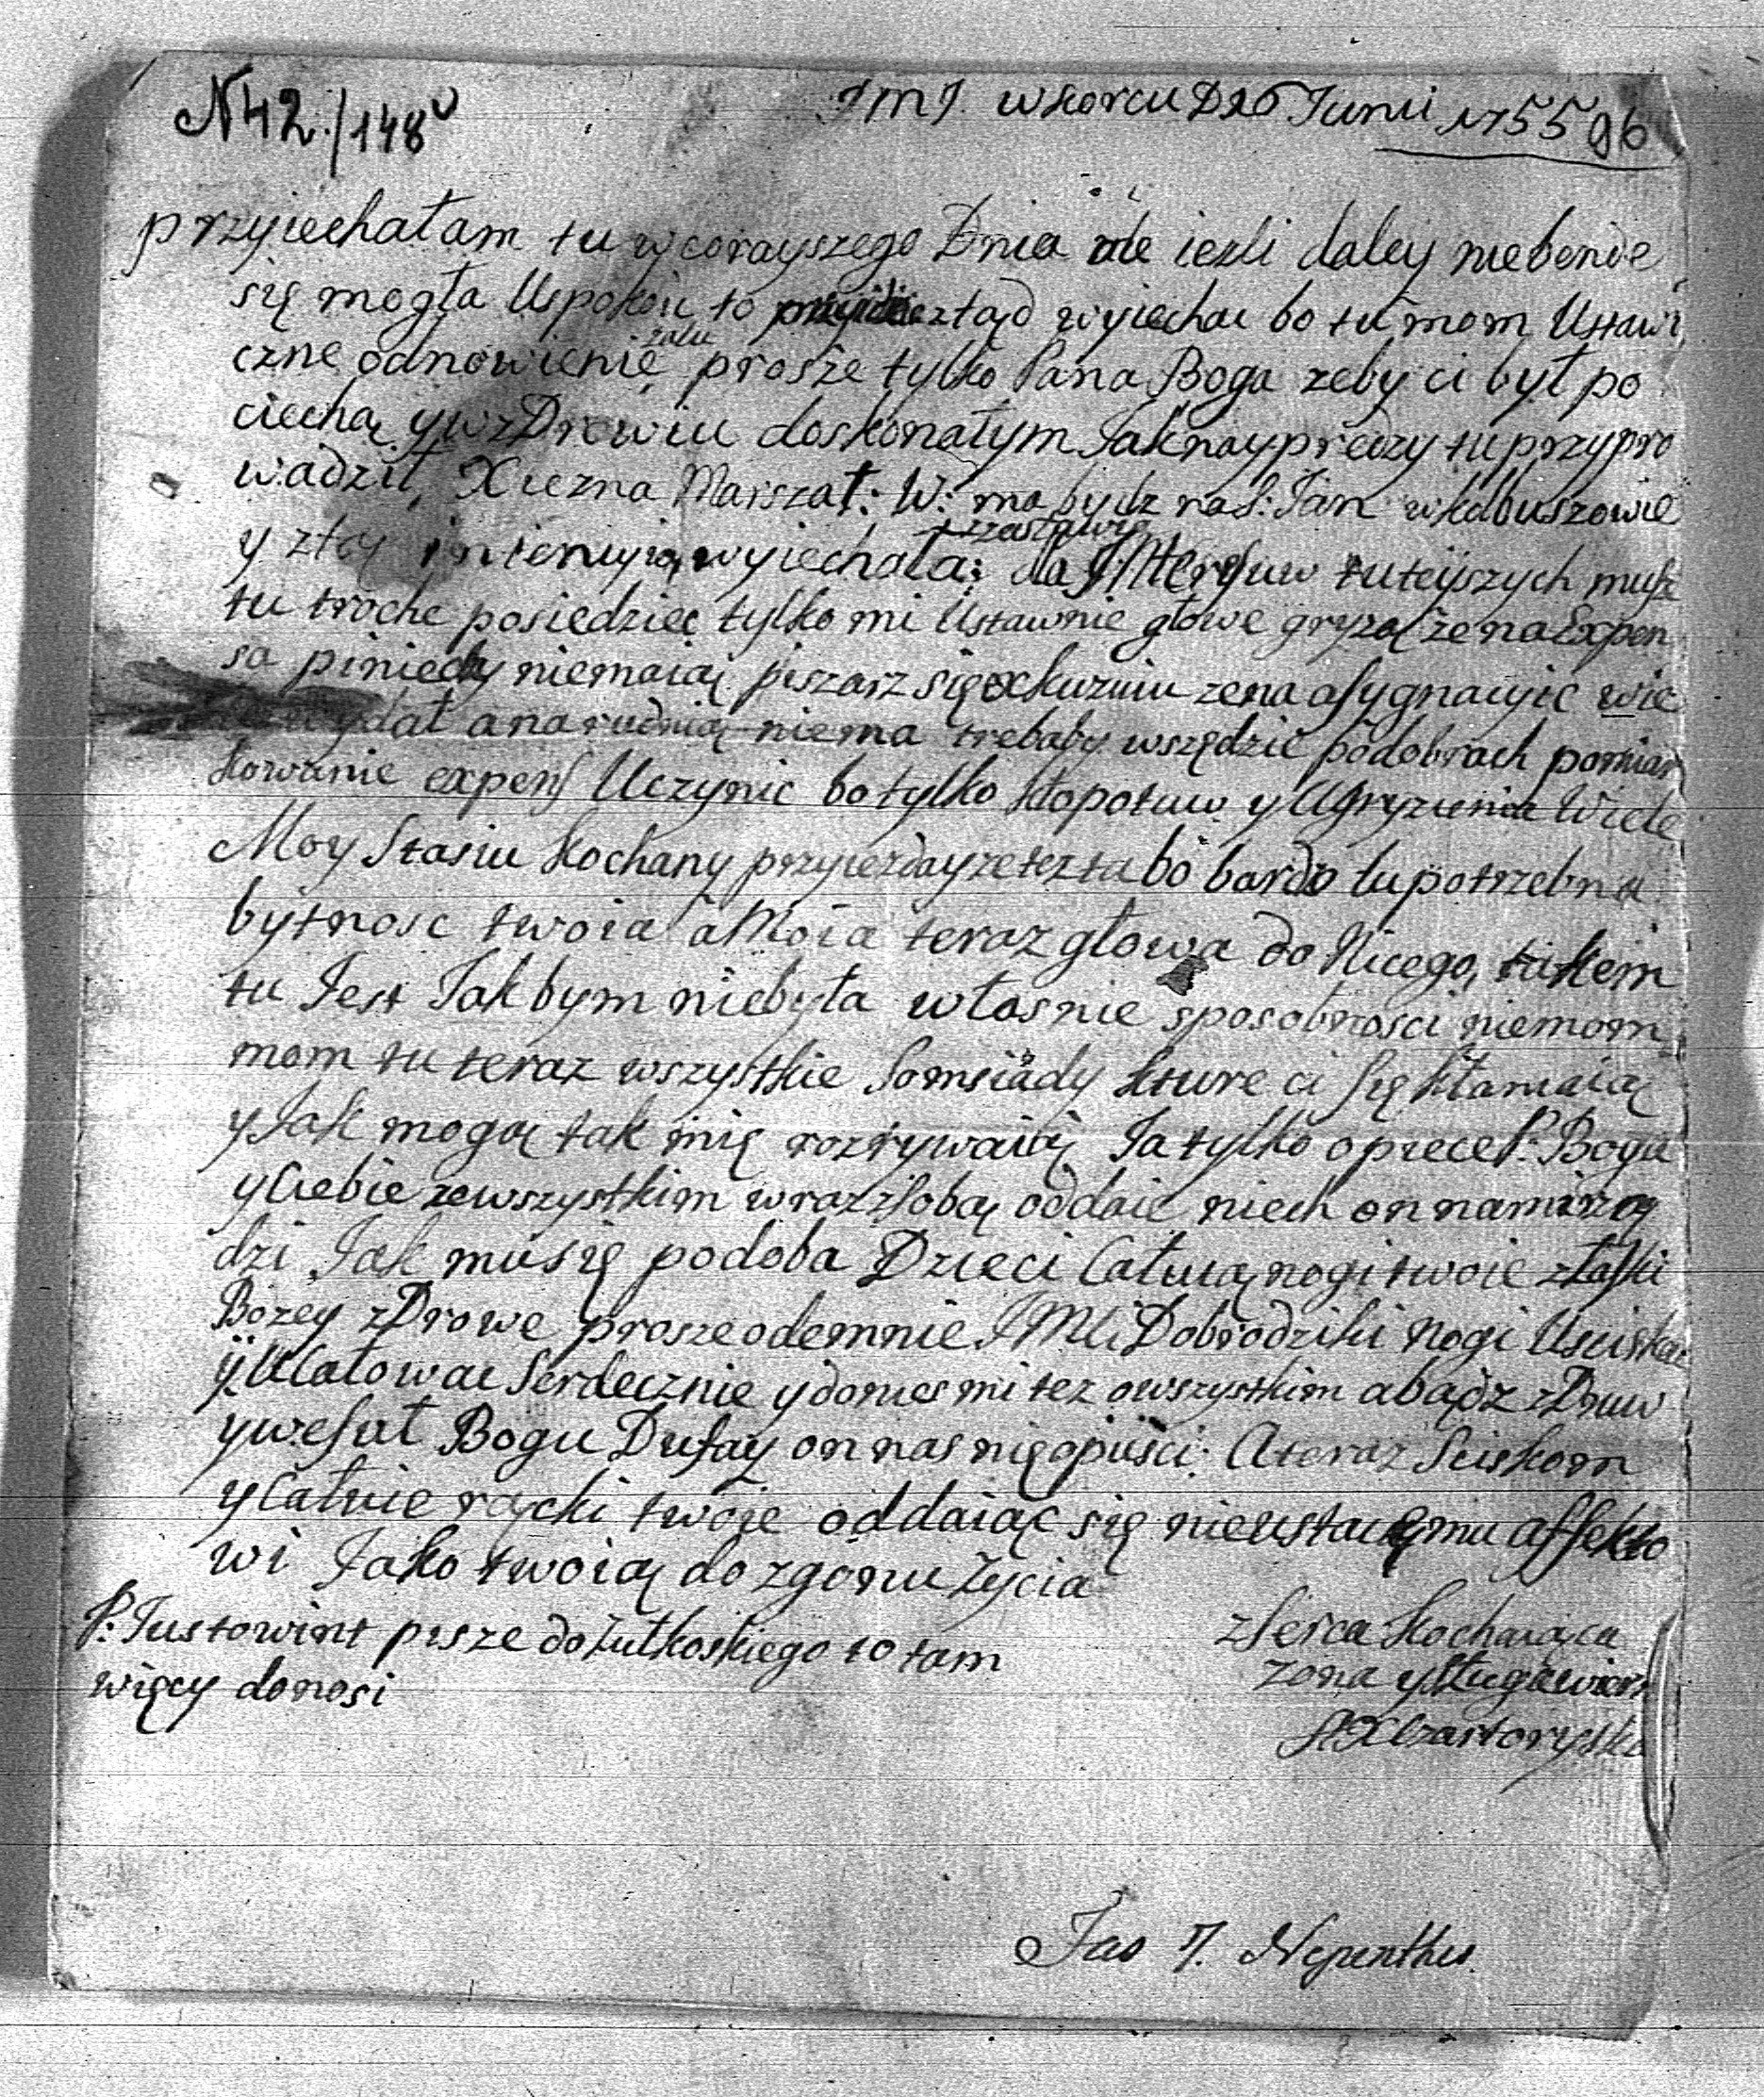 N42./148v
J M J. w Korcu D 26 Junii 1755 96
przyiechałam tu wcorayszego Dnia ale iezli daley niebende
się mogła Uspokoic to ztąd wyiechac bo tu mom Ustawi
czne odnowienie zalu prosze tylko Pana Boga zeby ci był po
ciechą y w zDrowiu doskonałym Jaknayprędzy tu przypro
wadził, Xiezna Marszał: W: ma bydz na S: Jan w Kolbuszowie
y ztey wyiechała z zasławia; dla JNteresuw tuteyszych musze
tu troche posiedziec tylko mi Ustawnie głowe gryzą że na Expen
sa piniedzy niemaią piszarz się exkuzuiu ze na assygnacyie wie
wydał a na rudnią niema trebaby wszędzie po dobrach pomiar
kowanie expens Uczynic bo tylko kłopotuw y Ugryzienia Wiele
Moy Stasiu Kochany przyiezdayze tez tu bo bardzo tu potrzebna
bytnosc twoia a Moia teraz głowa do Nicego, takem
tu Jest Jakbym niebyła własnie sposobnosci niemom
mom tu teraz wszystkie Somsiady kture ci się kłaniaią
y Jak mogą tak mię rozrywaią Ja tylko opiece P: Boga
y Ciebie ze wszystkim wraz z sobą oddaie niech on nami rzą
dzi Jak mu się podoba Dzieci Całuią nogi twoie z łaski
Bozey zDrowe prosze odemnie J M Dobrodziki nogi Usciskac
y UCałowac Serdecznie y donies mi tez o wszystkim a bądz zDruw
y wesuł Bogu Dufay on nas nie opusci. A teraz Sciskom
y Całuie rącki twoie oddaiąc się nieustaięmu affekto
wi Jako twoią do zgonu Życia
z Serca Kochaiąca
zona y sługa
A X Czartoryska
P: Justowint pisze do Żutkoskiego to tam
więcy donosi
Jas 7. Nepenthes.